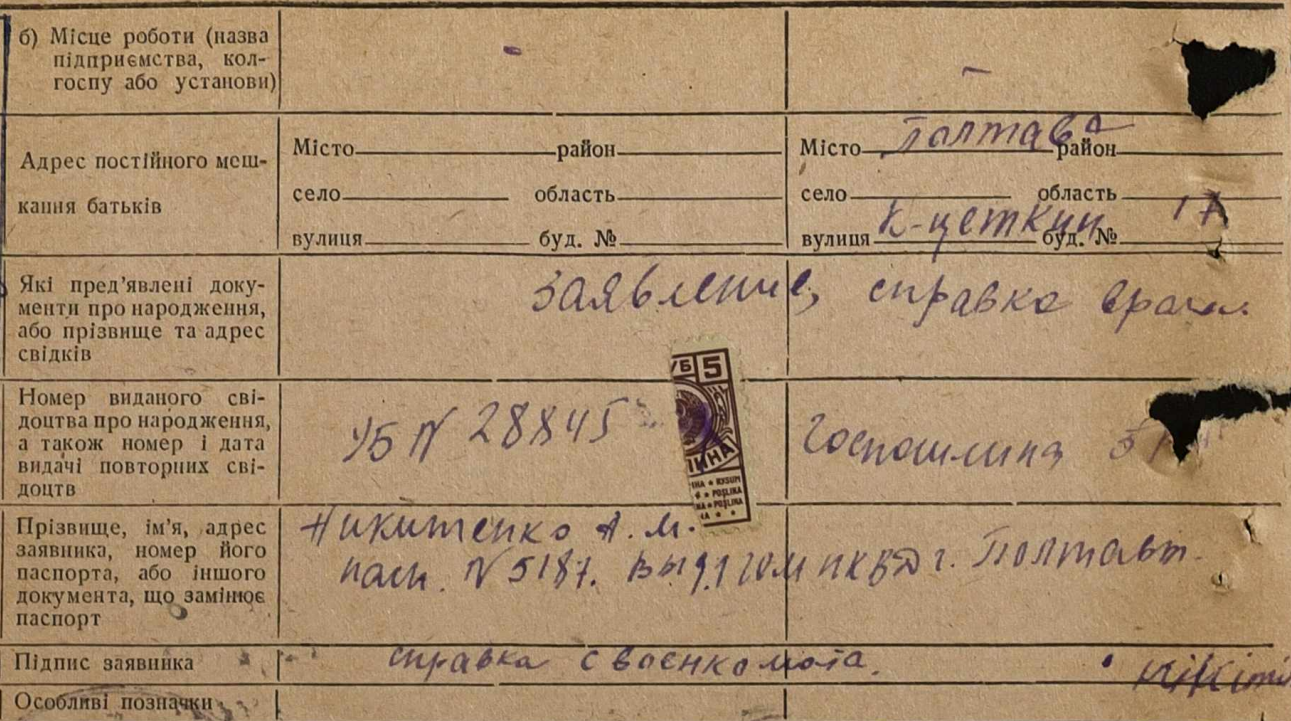 б) Місце роботи (назва
підприємства, кол-
госпу або установи)
-
-
Адрес постійного меш-
кання батьків
Місто район
село область
вулиця буд. №
Місто Полтава район
село область
вулиця К-цеткин буд. № 17
Які пред'явлені доку-
менти про народження,
або прізвище та адрес
свідків
Заявление, справка врача.
Номер виданого сві-
доцтва про народження,
а також номер і дата
видачі повторних сві-
доцтв
УБ N 28845
УБ 5
Госпошлина 5
Прізвище, ім'я, адрес
заявника, номер його
паспорта, або іншого
документа, що замінює
паспорт
Никитенко А. М.
пасп. N 5187. выд. 1 гом НКВД г. Полтавы.
Підпис заявника
справка с военкомата.
Особливі позначки